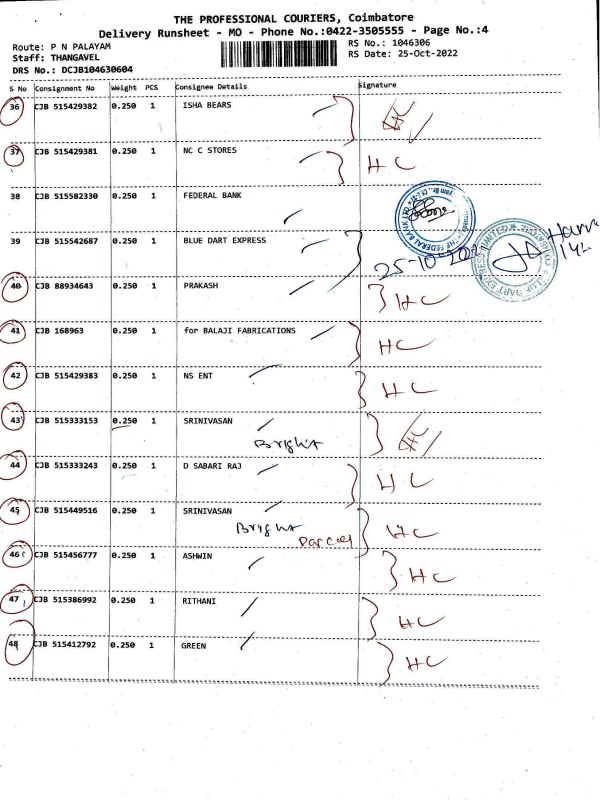 THE PROFESSIONAL COURIERS, Coimbatore
Delivery Runsheet - MO - Phone No.:0422-3505555 - Page No.:4
Route: P N PALAYAM
Staff: THANGAVEL
DRS No.: DCJB104630604
RS No.: 1046306
RS Date: 25-Oct-2022
S No Consignment No Weight PCS Consignee Details Signature
36 CJB 515429382 0.250 1 ISHA BEARS
37 CJB 515429381 0.250 1 NC C STORES HC
38 CJB 515582330 0.250 1 FEDERAL BANK
39 CJB 515542687 0.250 1 BLUE DART EXPRESS
25-10-2022
40 CJB 88934643 0.250 1 PRAKASH HC
41 CJB 168963 0.250 1 for BALAJI FABRICATIONS HC
42 CJB 515429383 0.250 1 NS ENT HC
43 CJB 515333153 0.250 1 SRINIVASAN
Bright
44 CJB 515333243 0.250 1 D SABARI RAJ HC
45 CJB 515449516 0.250 1 SRINIVASAN HC
Bright Parcel
46 CJB 515456777 0.250 1 ASHWIN HC
47 CJB 515386992 0.250 1 RITHANI HC
48 CJB 515412792 0.250 1 GREEN HC